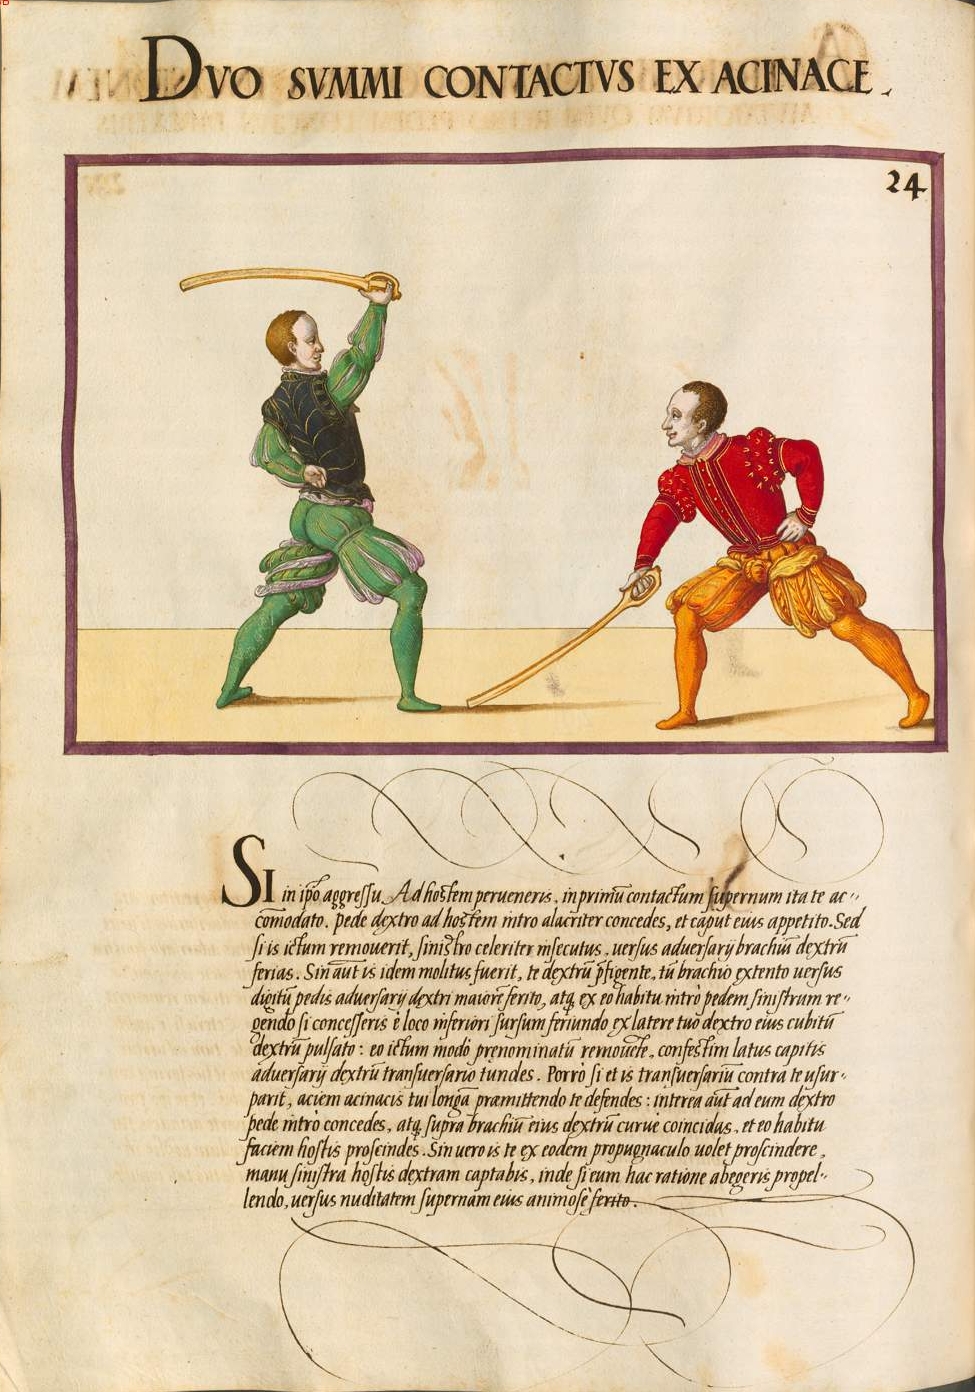 DVO SVMMI CONTACTVS EX ACINACE.
24
SI in ip̄o aggreſſu. Ad hoſtem perueneris, in primū contactum ſupernum ita te ac-
comodato. pede dextro ad hoſtem intro alacriter concedes, et caput eius appetito. Sed
ſi is ictum remouerit, ſiniſtro celeriter inſecutus, uerſus aduerſarij brachiū dextrū
ferias. Sin aūt is idem molitus fuerit, te dextrū p̄figente, tū brachio extento uerſus
digitū pedis aduerſarij dextri maiorē ferito, atq̨ ex eo habitu intrò pedem ſiniſtrum re-
gendo ſi conceſſeris è loco inferiori ſurſum feriundo ex latere tuo dextro eius cubitū
dextrū pulſato: eo ictum modò prenominatū remouete, confeſtim latus capitis
aduerſarij dextrū tranſuerſario tundes. Porrò ſi et is tranſuerſariū contra te uſur-
parit, aciem acinacis tui longā præmittendo te defendes: interea aūt ad eum dextro
pede intrò concedes, atq̨ ſupra brachiū eius dextrū curue coincidas, et eo habitu
faciem hoſtis proſcindes. Sin uero is te ex eodem propugnaculo uolet proſcindere,
manu ſiniſtra hoſtis dextram captabis, inde ſi eum hac ratione abegeris propel-
lendo, uerſus nuditatem ſupernam eius animoſè ferito.